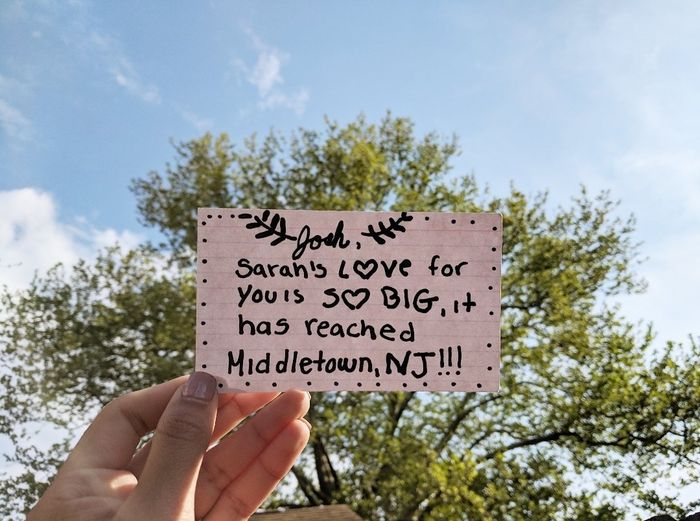 Josh,
Sarah's L♡ve for
you is S♡ BIG, it
has reached
Middletown, NJ!!!